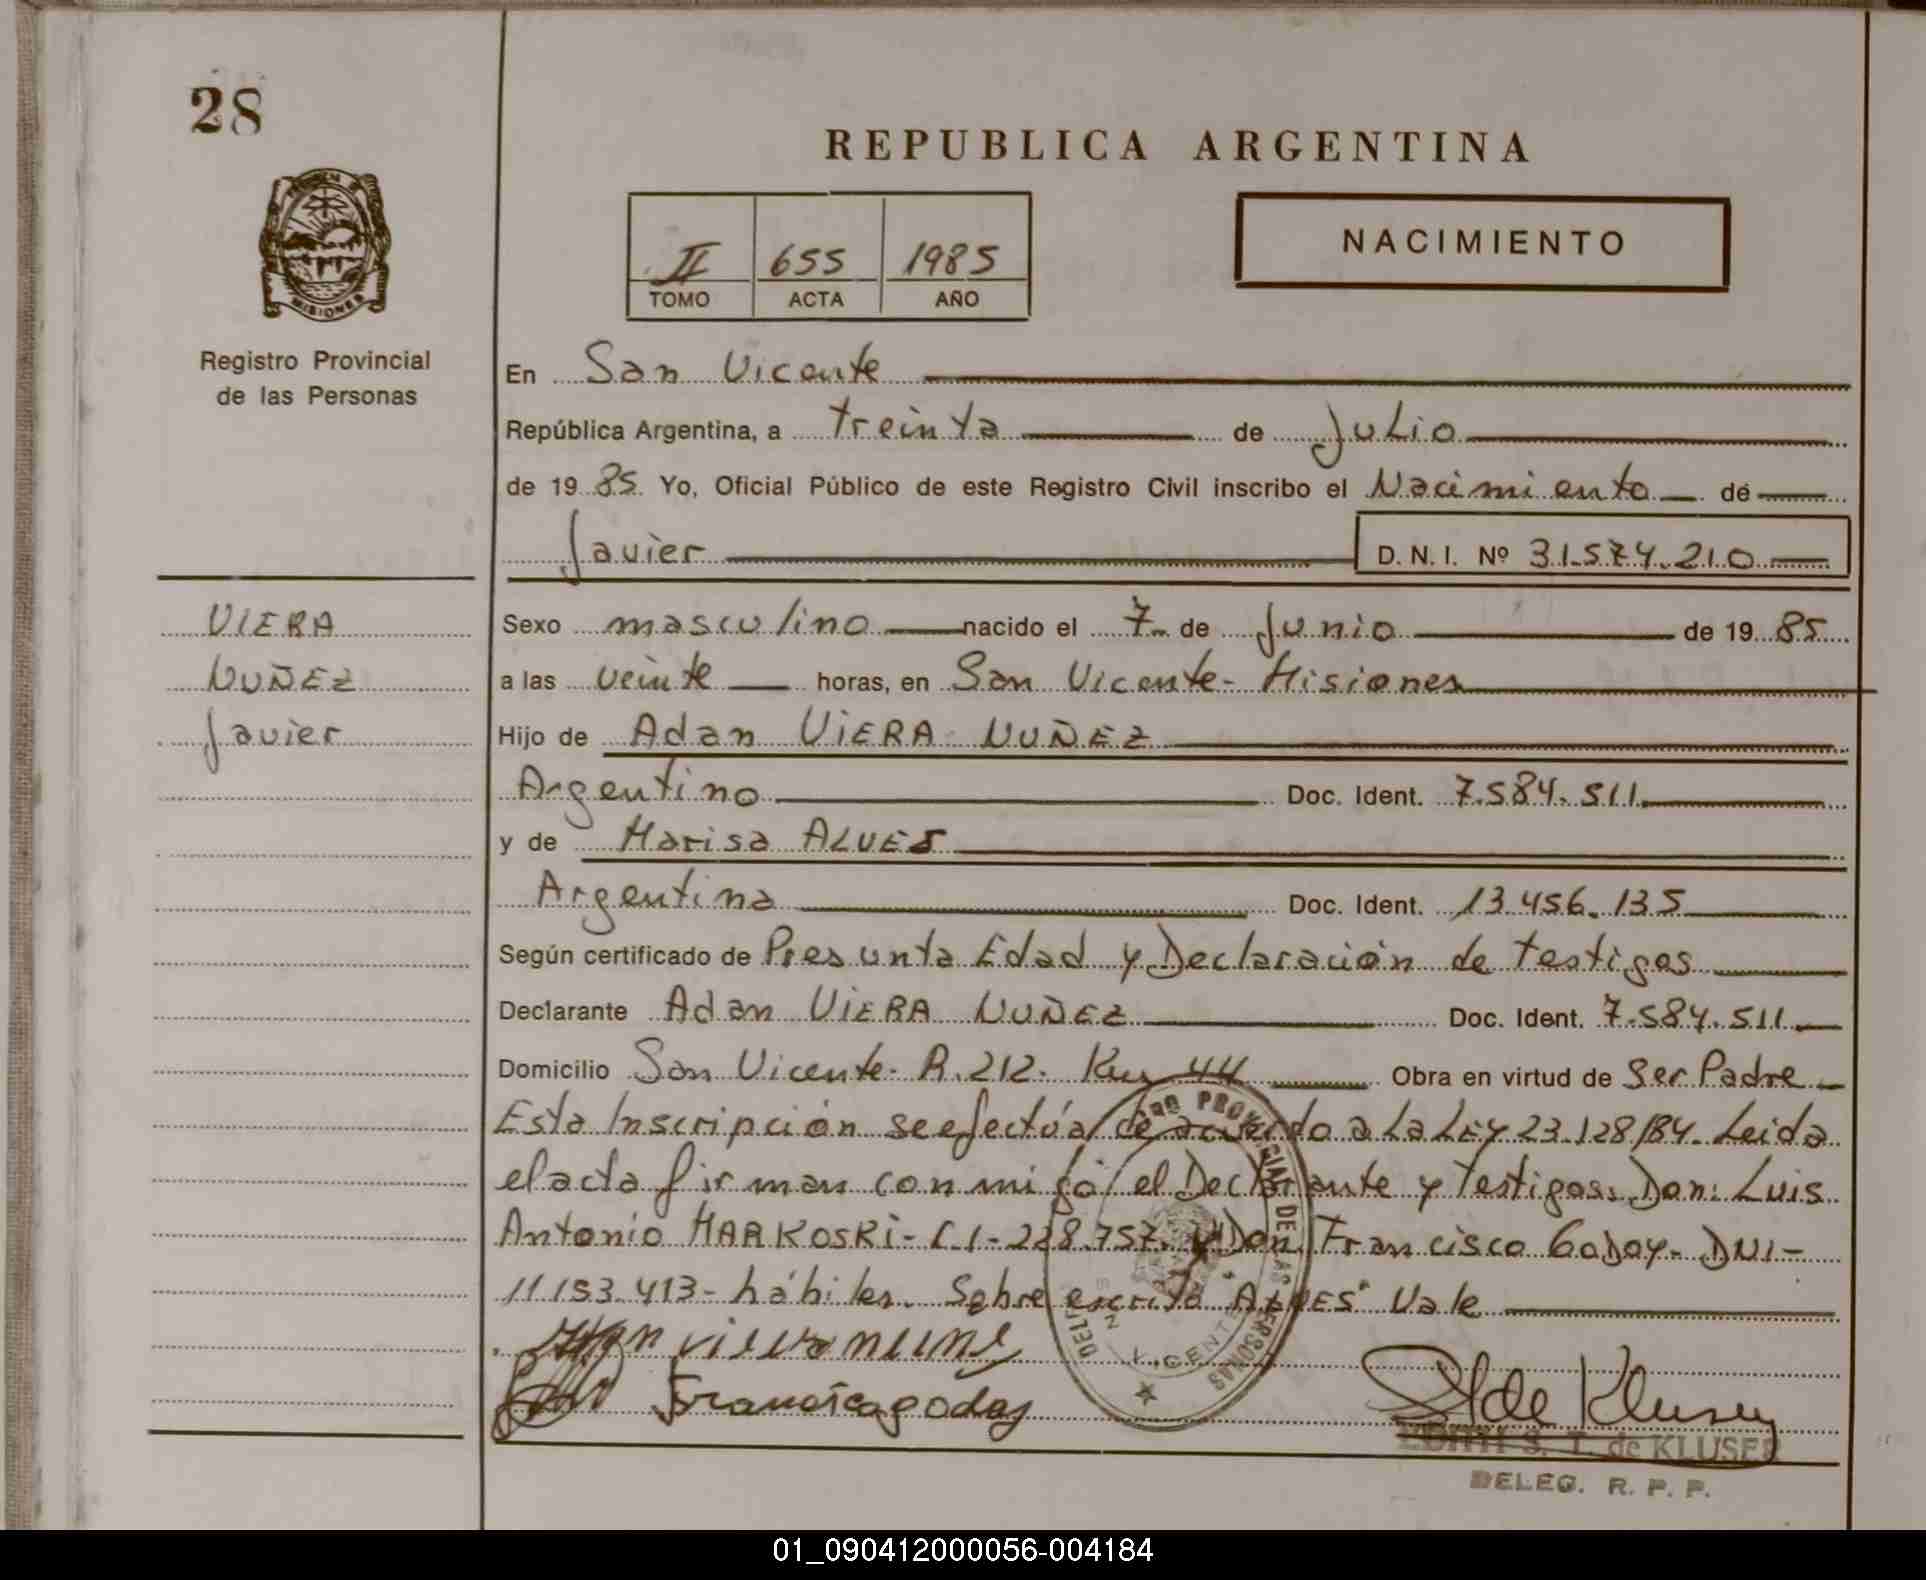 28
REPUBLICA ARGENTINA
II 655 1985
TOMO ACTA AÑO
NACIMIENTO
MISIONES
Registro Provincial
de las Personas
En San Vicente
República Argentina, a treinta de Julio
de 1985. Yo, Oficial Público de este Registro Civil inscribo el Nacimiento de
Javier D. N. I. Nº 31.574.210
VIERA
NUÑEZ
Javier
Sexo masculino nacido el 7 de Junio de 1985
a las veinte horas, en San Vicente - Misiones
Hijo de Adan VIERA NUÑEZ
Argentino Doc. Ident. 7.584.511
y de Marisa ALVES
Argentina Doc. Ident. 13.456.135
Según certificado de Presunta Edad y Declaración de testigos
Declarante Adan VIERA NUÑEZ Doc. Ident. 7.584.511
Domicilio San Vicente - R. 212 - Km 44 Obra en virtud de Ser Padre
Esta Inscripción se efectúa de acuerdo a La LEY 23.128/84. Leida
el acta firman conmigo el Declarante y testigos: Don: Luis
Antonio MARKOSKI - C.I - 228.757. y Don Francisco GODOY - DNI -
11.153.413 - hábiles. Sobre escrito "ALVES" Vale
Francisca godoy
EDITH S. T. de KLUSER
DELEG. R. P. P.
01_090412000056-004184